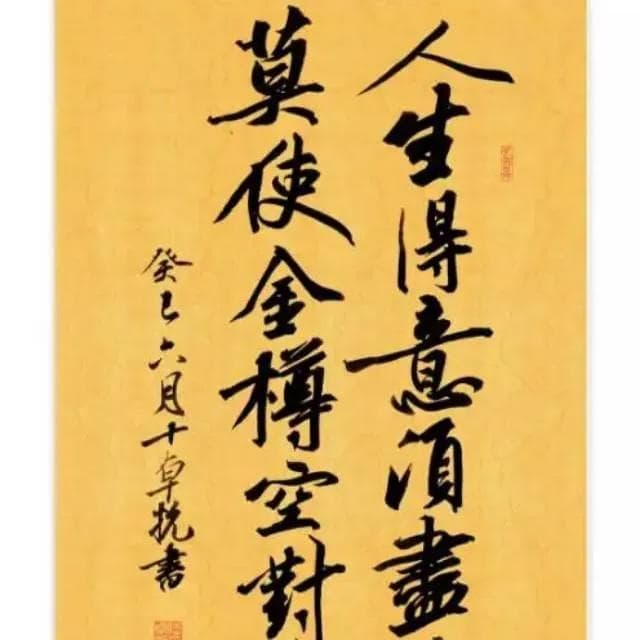 人生得意須盡
莫使金樽空對
癸巳六月十卓挽書